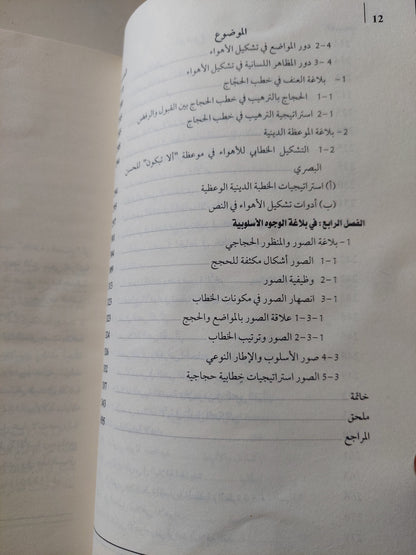 12
الموضوع
2-4 دور المواضع في تشكيل الأهواء
3-4 دور المظاهر اللسانية في تشكيل الأهواء
1- بلاغة العنف في خطب الحجّاج
1-1 الحجاج بالترهيب في خطب الحجاج بين القبول والرفض
2-1 استراتيجية الترهيب في خطب الحجاج
2- بلاغة الموعظة الدينية
1-2 التشكيل الخطابي للأهواء في موعظة "ألا تبكون" للحسن
البصري
(أ) استراتيجيات الخطبة الدينية الوعظية
(ب) أدوات تشكيل الأهواء في النص
الفصل الرابع: في بلاغة الوجوه الأسلوبية
1- بلاغة الصور والمنظور الحجاجي
1-1 الصور أشكال مكثفة للحجج
2-1 وظيفية الصور
3-1 انصهار الصور في مكونات الخطاب
1-3-1 علاقة الصور بالمواضع والحجج
2-3-1 الصور وترتيب الخطاب
4-3 صور الأسلوب والإطار النوعي
5-3 الصور استراتيجيات خطابية حجاجية
خاتمة
ملحق
المراجع